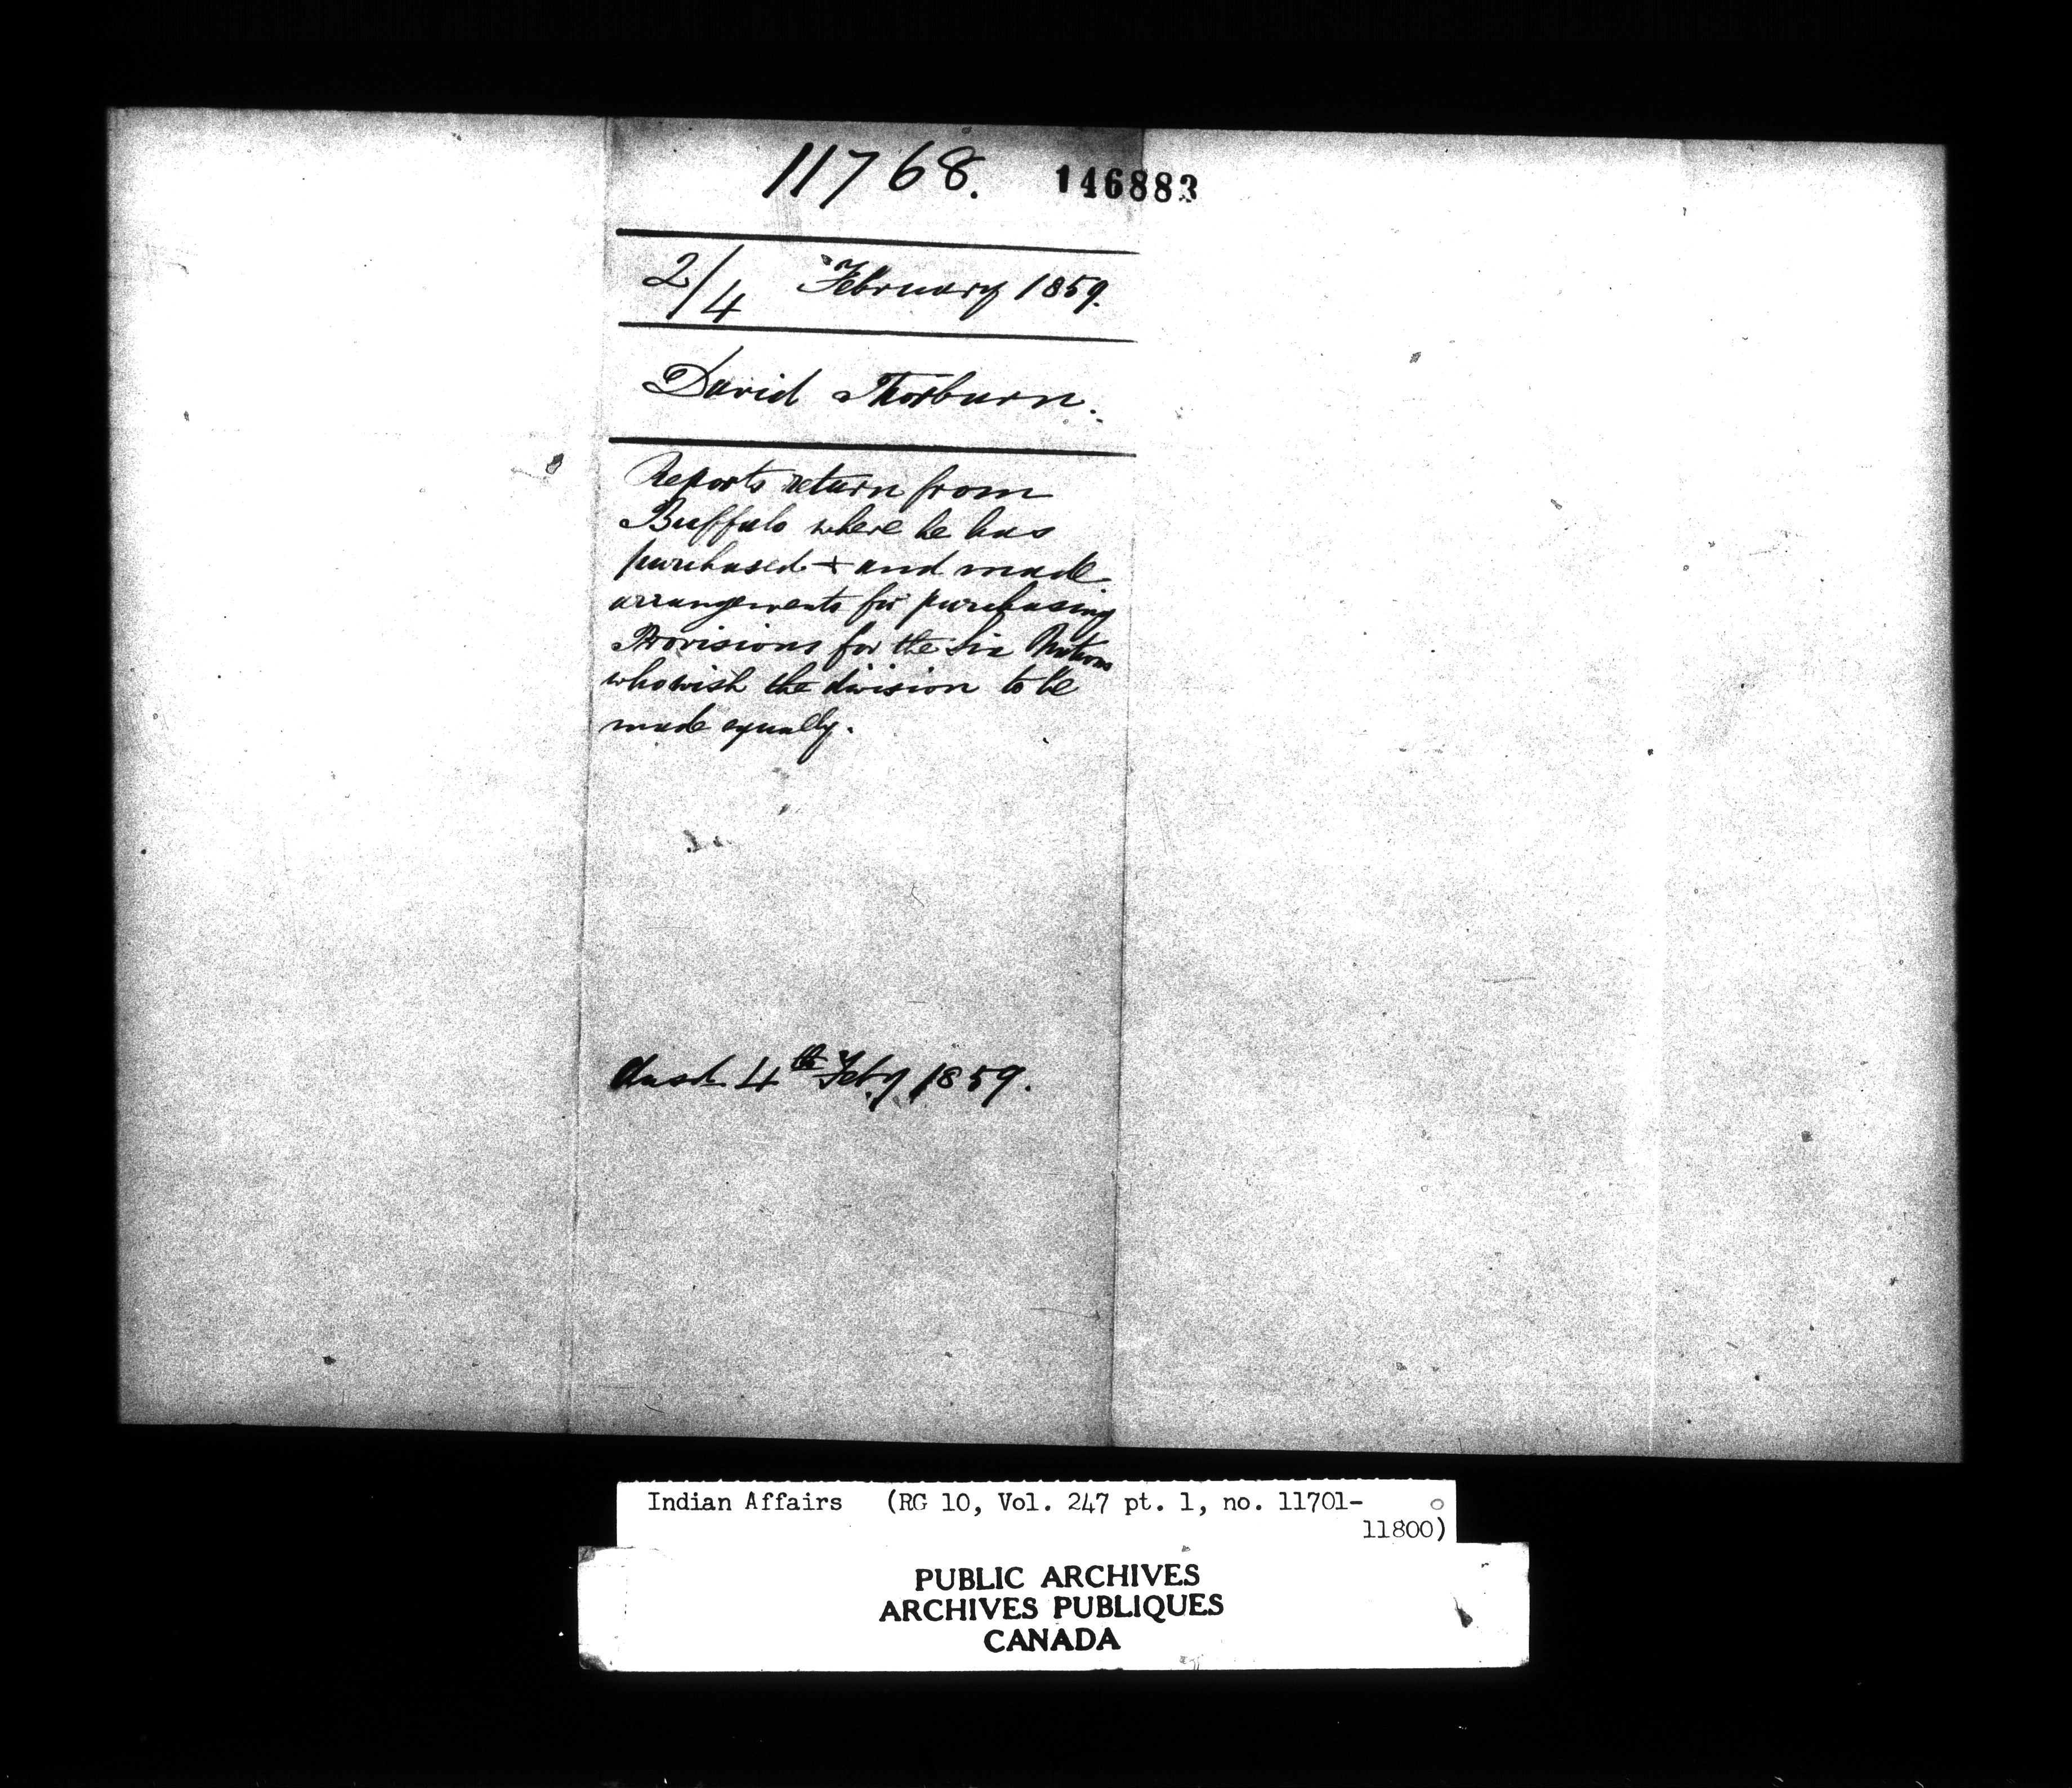 11768. 146883
2/4 February 1859.
David Thorburn.
Reports return from
Buffalo where he has
purchased + and made
arrangements for purchasing
Provisions for the Six Nations
who wish the division to be
made equally.
Ansd 4th Feby 1859.
Indian Affairs (RG 10, Vol. 247 pt. 1, no. 11701-
11800)
PUBLIC ARCHIVES
ARCHIVES PUBLIQUES
CANADA